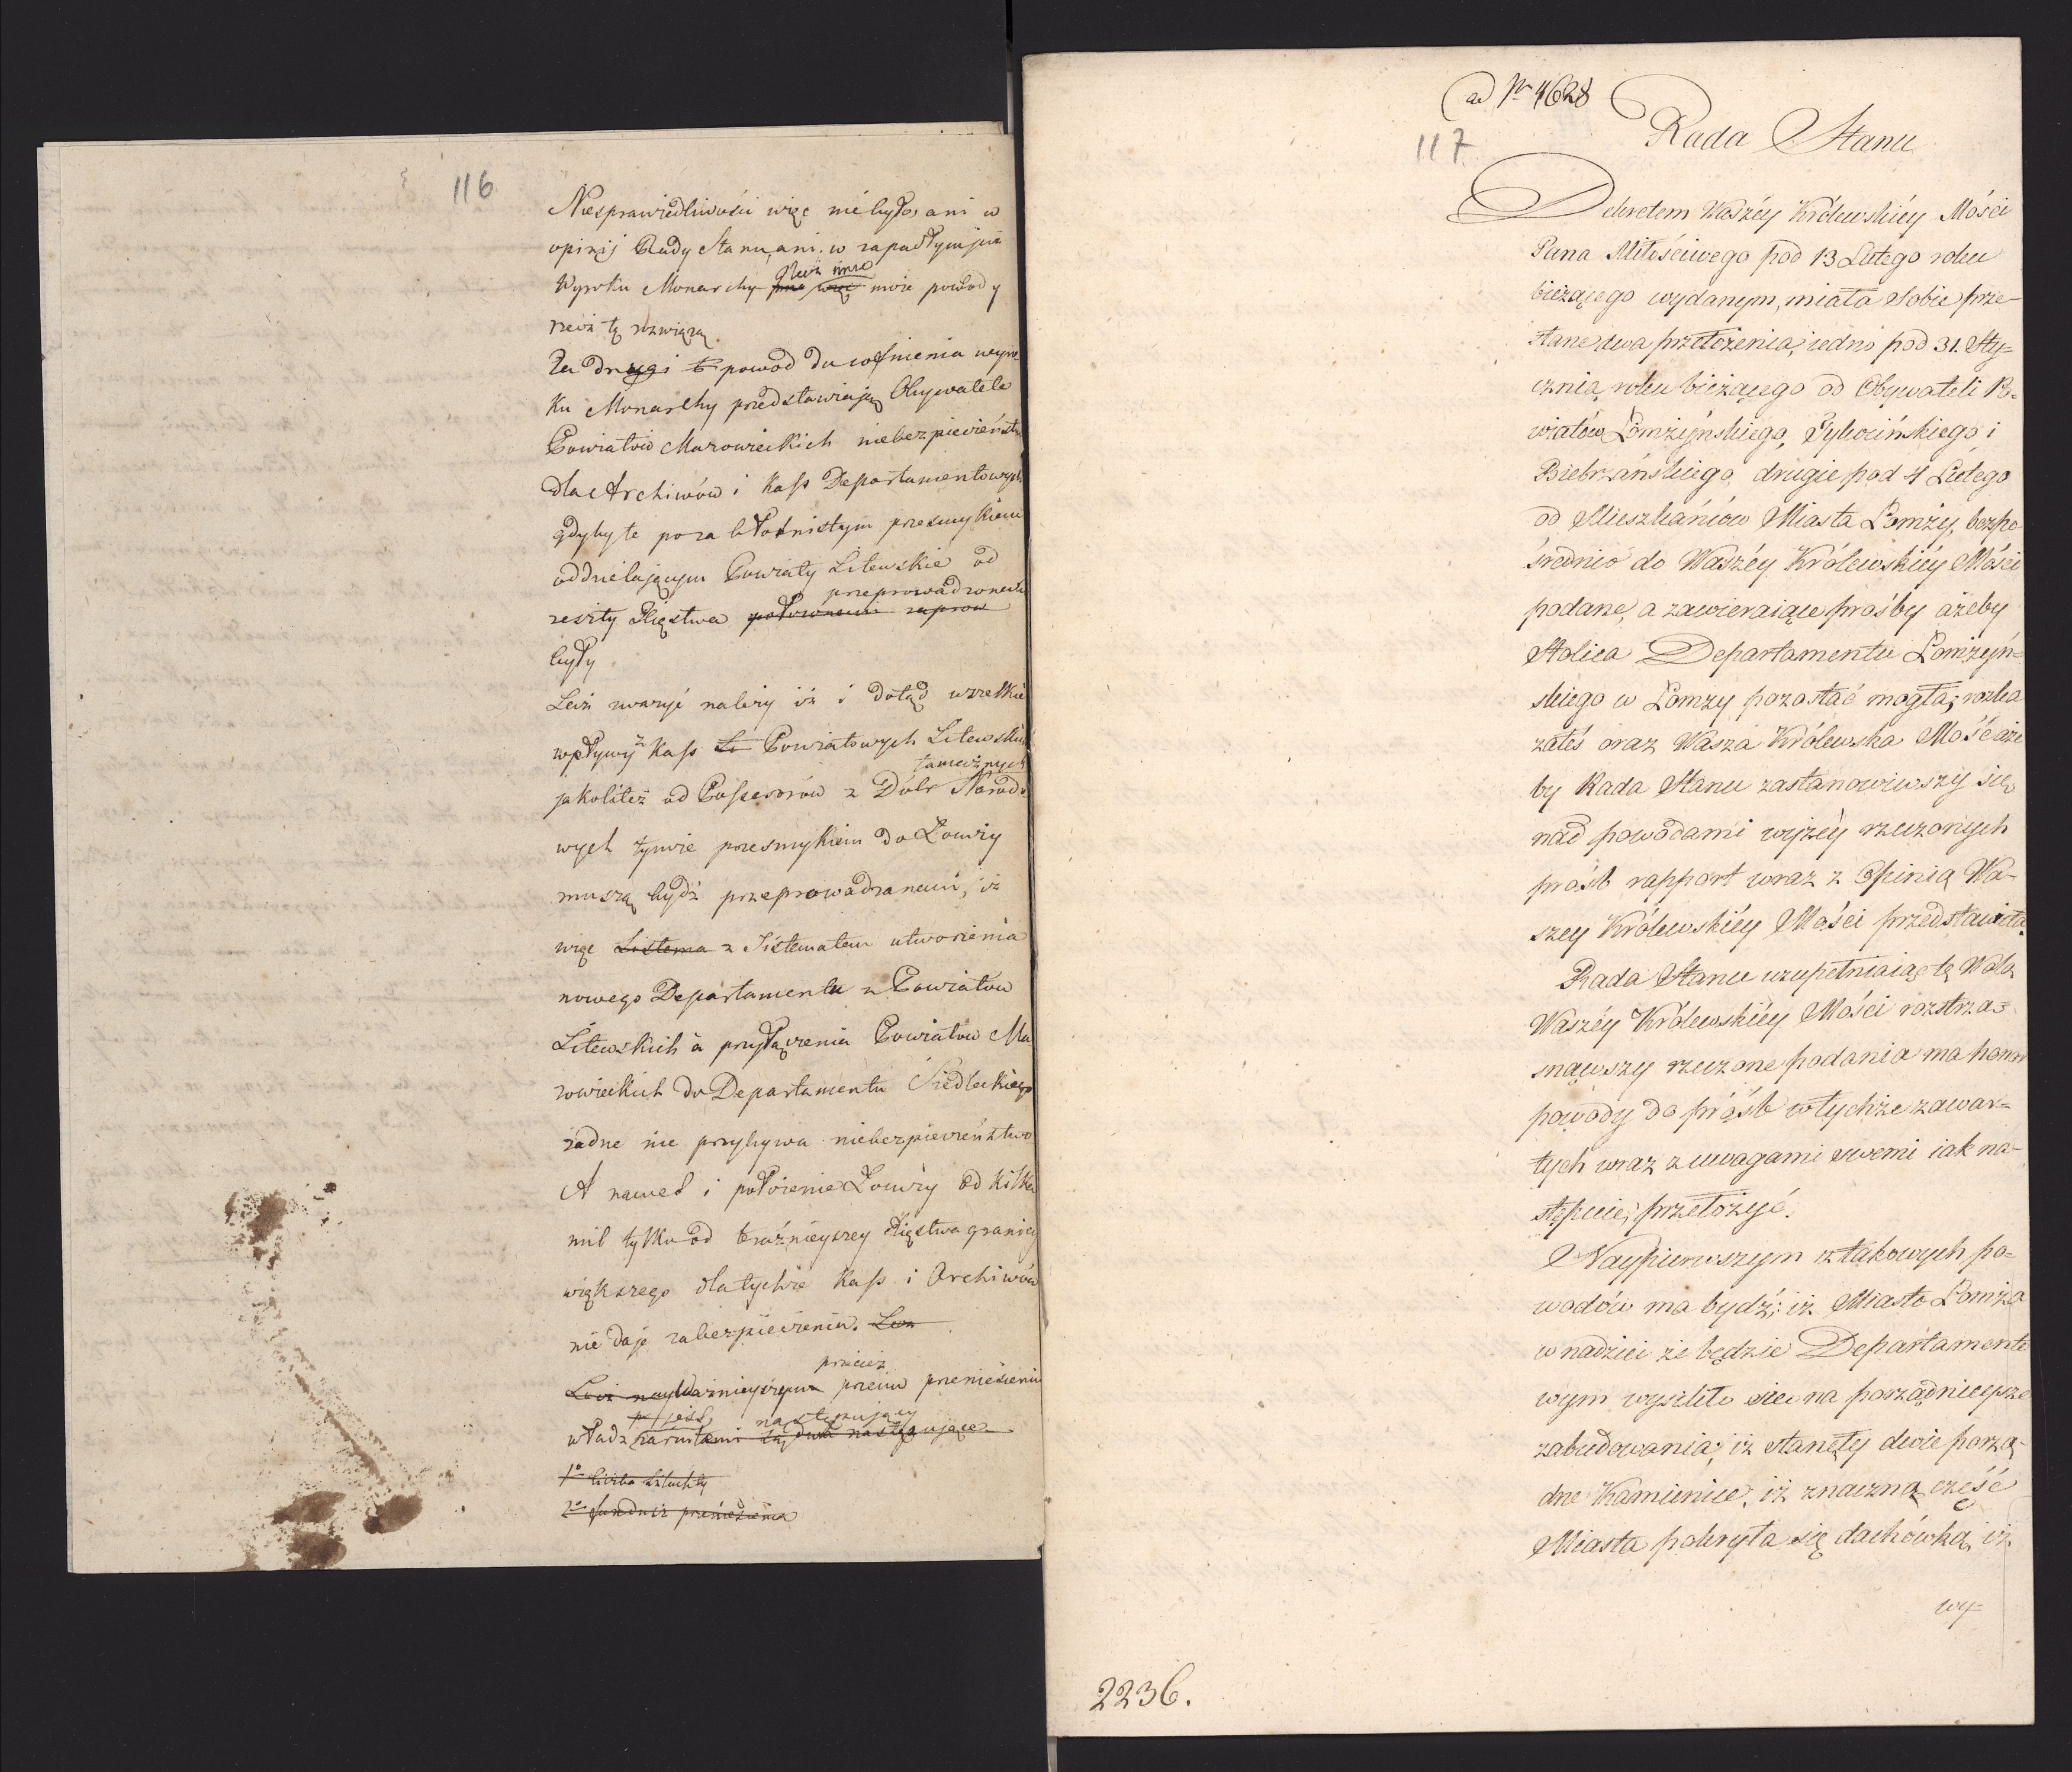 116
Niesprawiedliwości więc nie było, ani w
opinij Rady Stanu, ani w zapadłym już
Wyroku Monarchy może powody
rzecz tę rozwiążą
Za drugi powod do cofnienia wyro=
ku Monarchy przedstawiają Obywatele
Powiatów Mazowieckich niebezpieczeństwo
dla Archiwów i Kass Departamentowych
gdyby te poza błotnistym przesmykiem
oddzielającym Powiaty Litewskie od
przeprowadzonemi
reszty Xięstwa
były
Lecz zważyć należy iż i dotąd wszelkie
wpływy z Kass Powiatowych Litewskich
tamecznych
jakoliteż od Possessorów z Dóbr Narodo
wych tymże przesmykiem do Łomży
muszą bydź przeprowadzanemi, iż
więc Sistema z Sistematem utworzenia
nowego Departamentu z Powiatów
Litewskich a przyłączenia Powiatów Ma
zowieckich do Departamentu Siedleckiego
żadne nie przybywa niebezpieczeństwo
A nawet i położenie Łomży od kilku
mil tylko od teraźnieyszey Xięstwa granicy
większego dla tychże Kass i Archiwów
nie daje zabezpieczenia. Lecz
przeciez
Lecz nayważnieyszym przeciw przeniesieniu
jest następujący
władz zarzutami są dwa następujące
1o liczba szlachty
2o fundusz przeniesienia
ad Nr 4628
117
Rada Stanu
Dekretem Waszéy Królewskiéy Mości
Pana Miłościwego pod 13 Lutego roku
bieżącego wydanym, miała Sobie prze-
słane dwa przełożenia, iedno pod 31. Sty=
cznia roku bieżącego od Obywateli Po=
wiatów Łomżyńskiego, Tykocińskiego i
Biebrzańskiego, drugie pod 4 Lutego
od Mieszkańców Miasta Łomży, bezpo
średnio do Waszéy Królewskiéy Mości
podane, a zawieraiące prośby ażeby
Stolica Departamentu Łomżyń=
skiego w Łomży pozostać mogła; rozka
załeś oraz Wasza Królewska Mość aże
by Rada Stanu zastanowiwszy się
nad powodami wyżéy rzeczonych
prośb rapport wraz z Opinią Wa-
szey Królewskiéy Mości przedstawiła.
Rada Stanu uzupełniaiąc tę Wolą
Waszéy Królewskiéy Mości roztrzą=
snąwszy rzeczone podania ma honor
powody do próśb w tychże zawar=
tych wraz z uwagami swemi iak na-
stępuie, przełożyć.
Naypierwszym z takowych po=
wodów ma bydź: iż Miasto Łomża
w nadziei że będzie Departamento
wym wysiliło się na porządnieysze
zabudowania; iż stanęły dwie porzą-
dne Kamienice, iż znaczna część
Miasta pokryła się dachówką, iż
wy=
2236.